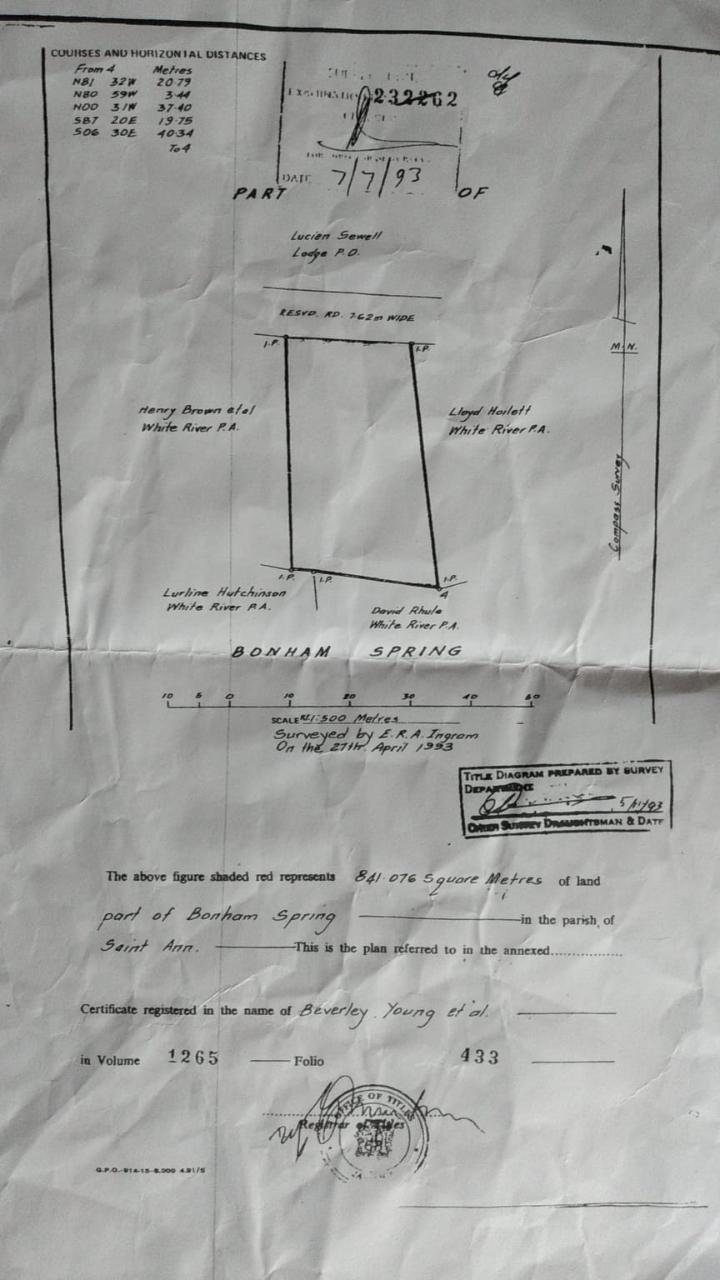 COURSES AND HORIZONTAL DISTANCES
From 4 Metres
N81 32W 20·79
N80 59W 3·44
N00 31W 37·40
S87 20E 19·75
S06 30E 40·34
To 4
232262
DATE 7/7/93
PART OF
Lucien Sewell
Lodge P.O.
RESVD. RD. 7.62m WIDE
I.P. I.P.
M.N.
Henry Brown et al
White River P.A.
Lloyd Hoilett
White River P.A.
Compass Survey
I.P. I.P. I.P.
4
Lurline Hutchinson
White River P.A.
David Rhule
White River P.A.
BONHAM SPRING
10 5 0 10 20 30 40 50
SCALE 1:500 Metres
Surveyed by E.R.A. Ingram
On the 27th. April 1993
TITLE DIAGRAM PREPARED BY SURVEY
DEPARTMENT
SURVEY DRAUGHTSMAN & DATE
The above figure shaded red represents 841·076 Square Metres of land
part of Bonham Spring in the parish of
Saint Ann. This is the plan referred to in the annexed
Certificate registered in the name of Beverley Young et al.
in Volume 1265 Folio 433
Registrar of Titles
OFFICE OF TITLES
G.P.O.-914-15-8,000 4.91/S